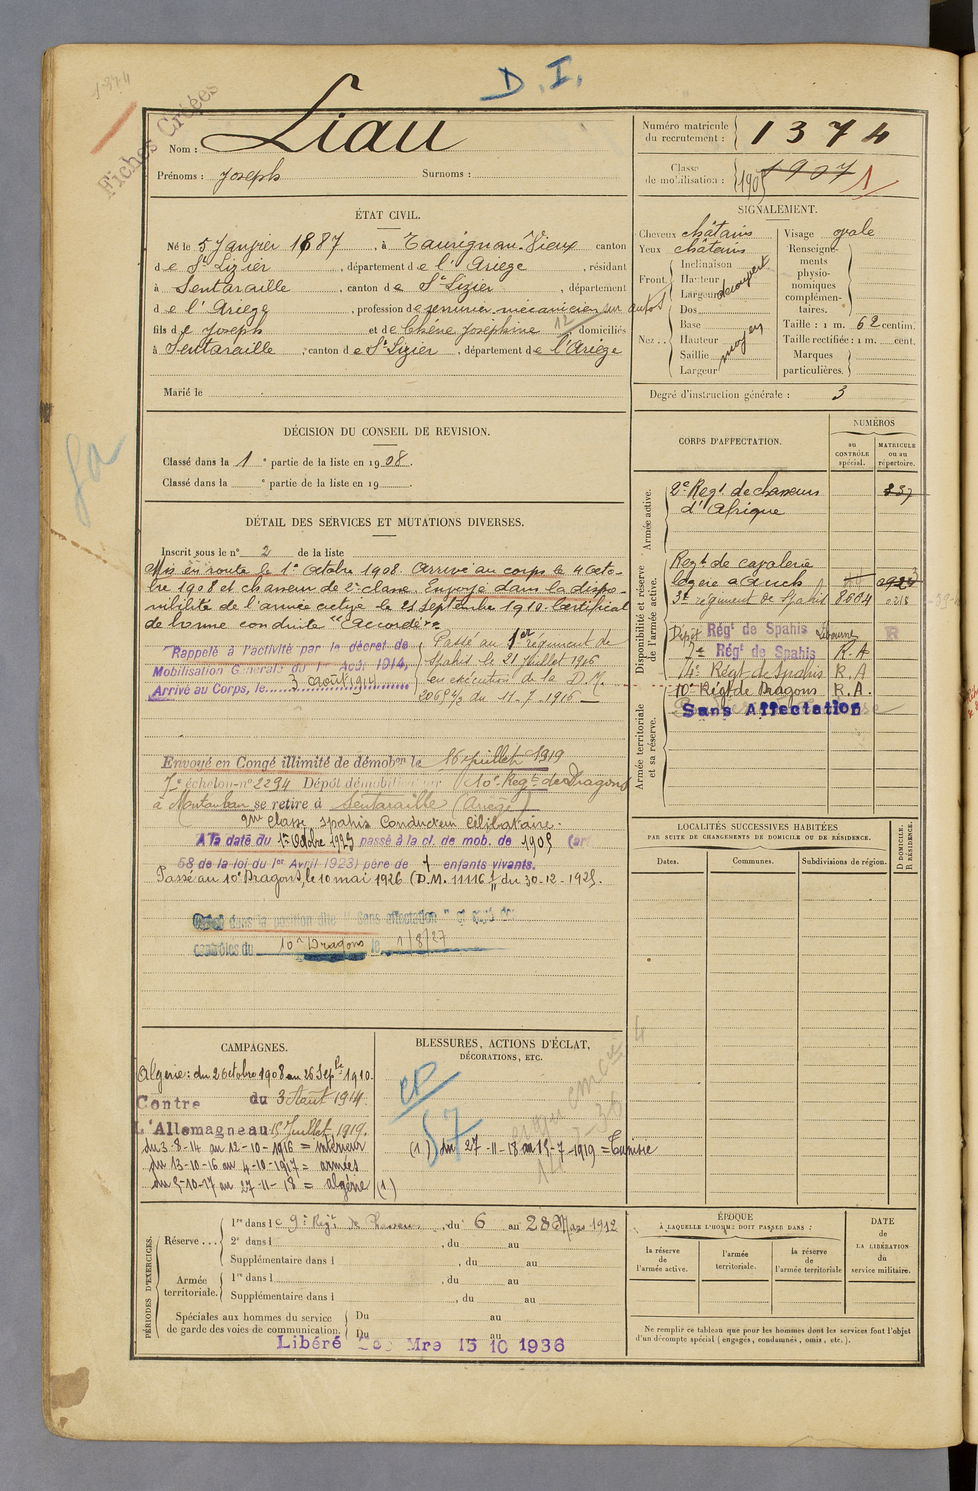 1374
D. I.
Fiches Créées
Nom : Liau
Prénoms : Joseph Surnoms :
Numéro matricule
du recrutement : 1374
Classe
de mobilisation : 1905 1907 1
ÉTAT CIVIL.
Né le 5 Janvier 1887, à Taurignan-Vieux canton
de St Lizier, département de l'Ariège, résidant
à Sentaraille, canton de St Lizier, département
de l'Ariège, profession de serrurier mécanicien sur autos
fils de Joseph et de Chêne Joséphine 12 domiciliés
à Sentaraille, canton de St Lizier, département de l'Ariège
Marié le
SIGNALEMENT.
Cheveux châtains
Yeux châtains
Front Inclinaison
Hauteur
Largeur découvert
Nez .. Dos
Base
Hauteur
Saillie moyen
Largeur
Visage ovale
Renseigne-
ments
physio-
nomiques
complémen-
taires.
Taille : 1 m. 62 centim.
Taille rectifiée : 1 m. cent.
Marques
particulières.
Degré d'instruction générale : 3
DÉCISION DU CONSEIL DE REVISION.
Classé dans la 1e partie de la liste en 1908.
Classé dans la e partie de la liste en 19 .
DÉTAIL DES SERVICES ET MUTATIONS DIVERSES.
Inscrit sous le n° 2 de la liste
Mis en route le 1er Octobre 1908. Arrivé au corps le 4 Octo-
bre 1908 et chasseur de 2e classe. Envoyé dans la dispo-
nibilité de l'armée active le 25 septembre 1910. Certificat
de bonne conduite "Accordé".
Rappelé à l'activité par le décret de
Mobilisation Générale du 1er Août 1914,
Arrivé au Corps, le 3 août 1914
Passé au 1er régiment de
Spahis le 21 Juillet 1916
en exécution de la D.M.
du 11-7-1916
Envoyé en Congé illimité de démobon le 16 juillet 1919
7e échelon n° 2294 Dépôt démobilisateur 10e Regt de Dragons
à Montauban se retire à Sentaraille (Ariège)
2me classe spahis Conducteur célibataire.
A la date du 1er Octobre 1923 passé à la cl. de mob. de 1905 (art
58 de la loi du 1er Avril 1923) père de 1 enfants vivants.
Passé au 10e Dragons, le 10 mai 1926 (D.M. 11116 du 30-12-1925.
dans la position dite "Sans affectation" et
contrôles du 10e Dragons le 1/8/27
CORPS D'AFFECTATION.
NUMÉROS
au
CONTRÔLE
spécial.
MATRICULE
ou au
répertoire.
Armée active.
2e Regt. de chasseurs
d'Afrique 337
Disponibilité et réserve
de l'armée active.
Regt de cavalerie
légère à Auch
3e régiment de Spahis 8604
Dépôt Régt de Spahis Libourne R
7e Régt de Spahis R.A
14e Régt de Spahis R.A
10e Régt de Dragons R.A.
Sans Affectation
Armée territoriale
et sa réserve.
LOCALITÉS SUCCESSIVES HABITÉES
PAR SUITE DE CHANGEMENTS DE DOMICILE OU DE RÉSIDENCE.
Dates.
Communes.
Subdivisions de région.
D DOMICILE.
R RÉSIDENCE.
CAMPAGNES.
Algérie : du 2 Octobre 1908 au 26 Sepbre 1910.
Contre du 3 Août 1914
L'Allemagne au 15 Juillet 1919.
du 3-8-14 au 12-10-1916 = intérieur
du 13-10-16 au 4-10-1917 = armées
du 5-10-17 au 27-11-18 = algérie (1)
BLESSURES, ACTIONS D'ÉCLAT,
DÉCORATIONS, ETC.
(1) du 27-11-18 au 15-7-1919 = Tunisie
PÉRIODES D'EXERCICES.
Réserve ... 1re dans le 9e Regt de Chasseurs, du 6 au 28 Mars 1912
2e dans l , du au
Supplémentaire dans l , du au
Armée
territoriale. 1re dans l , du au
Supplémentaire dans l , du au
Spéciales aux hommes du service
de garde des voies de communication. Du au
Du au
Libéré Mre 15 10 1936
ÉPOQUE
À LAQUELLE L'HOMME DOIT PASSER DANS :
la réserve
de
l'armée active.
l'armée
territoriale.
la réserve
de
l'armée territoriale
DATE
de
LA LIBÉRATION
du
service militaire.
Ne remplir ce tableau que pour les hommes dont les services font l'objet
d'un décompte spécial (engagés, condamnés, omis, etc.).